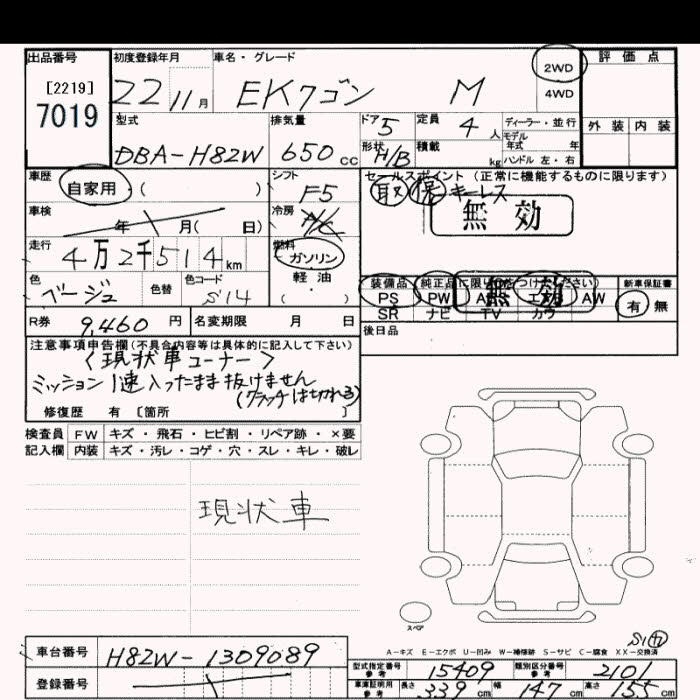 出品番号 初度登録年月 車名・グレード 2WD 評価点
[2219] 22 11月 EKワゴン M 4WD
7019 外装 内装
型式 排気量 ドア 5 定員 4人 ディーラー・並行
モデル年式 年
DBA-H82W 650cc 形状 H/B 積載 kg ハンドル 左・右
車歴 シフト セールスポイント (正常に機能するものに限ります)
自家用・( ) F5 取 保 キーレス
車検 年 月( 日) 冷房 A/C 無効
走行 燃料
4万2千514km ガソリン
色 色替 色コード 軽油 装備品 純正品に限り○をつけてください) 新車保証書
ベージュ S14 ・( ) PS PW エアB AW 有 無
無効
SR ナビ TV カワ
R券 9,460円 名変期限 月 日 後日品
注意事項申告欄(不具合内容等は具体的に記入して下さい)
<現状車コーナー>
ミッション1速入ったまま抜けません
(クラッチは切れる)
修復歴 有 [箇所 ]
検査員 FW キズ・飛石・ヒビ割・リペア跡・×要
記入欄 内装 キズ・汚レ・コゲ・穴・スレ・キレ・破レ
現状車
スペア
A-キズ E-エクボ U-凹み W-補修跡 S-サビ C-腐食 XX-交換済
車台番号 H82W-1309089
型式指定番号 参考 15409 類別区分番号 参考 2101
登録番号
車庫証明用 参考 長さ 339cm 幅 147cm 高さ 155cm